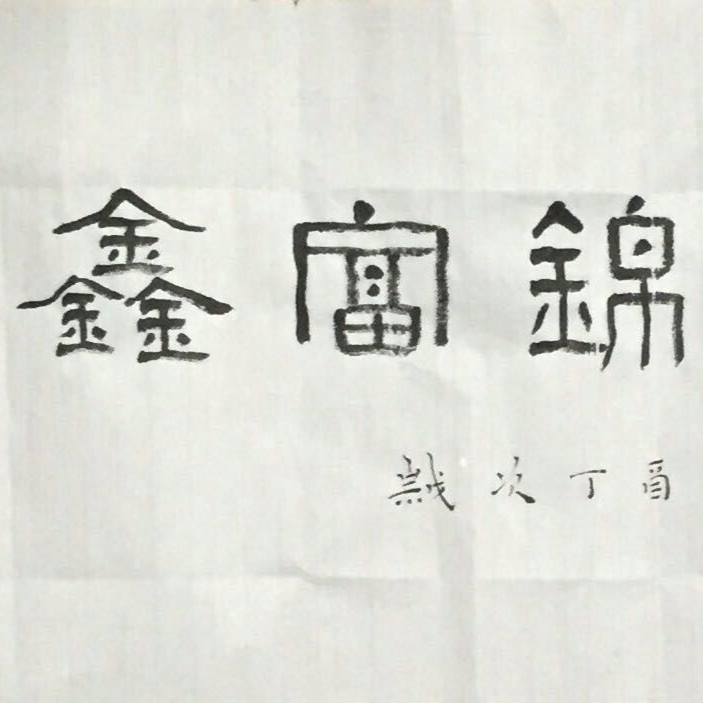 鑫富錦
歲次丁酉